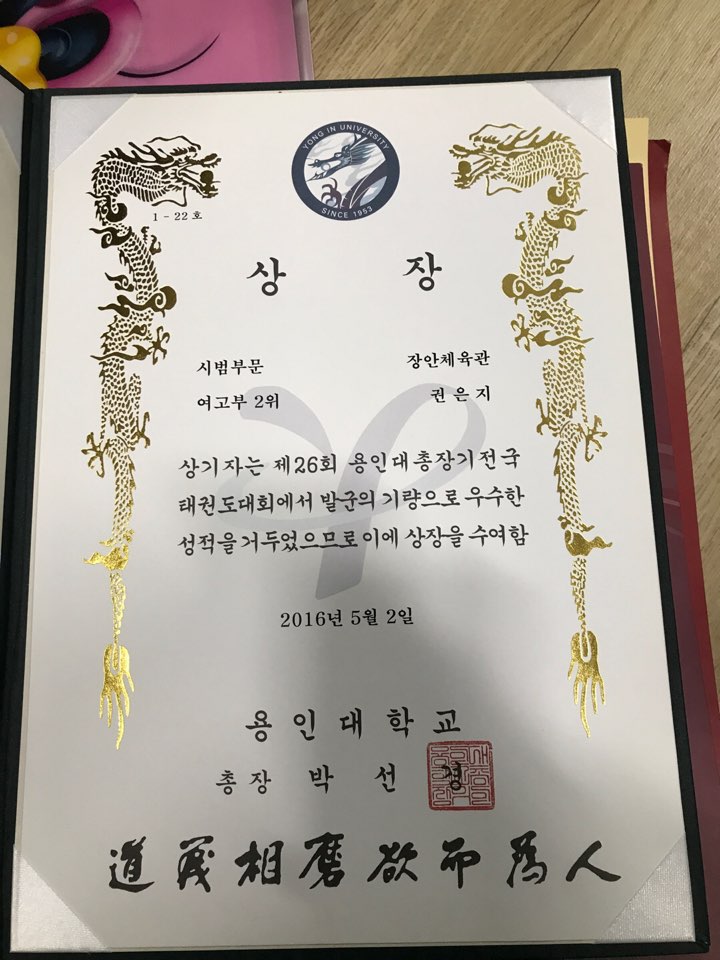 YONG IN UNIVERSITY
SINCE 1953
1 - 22 호
상 장
시범부문 장안체육관
여고부 2위 권은지
상기자는 제26회 용인대총장기전국
태권도대회에서 발군의 기량으로 우수한
성적을 거두었으므로 이에 상장을 수여함
2016년 5월 2일
용인대학교
총장 박선경
道義相磨欲而為人